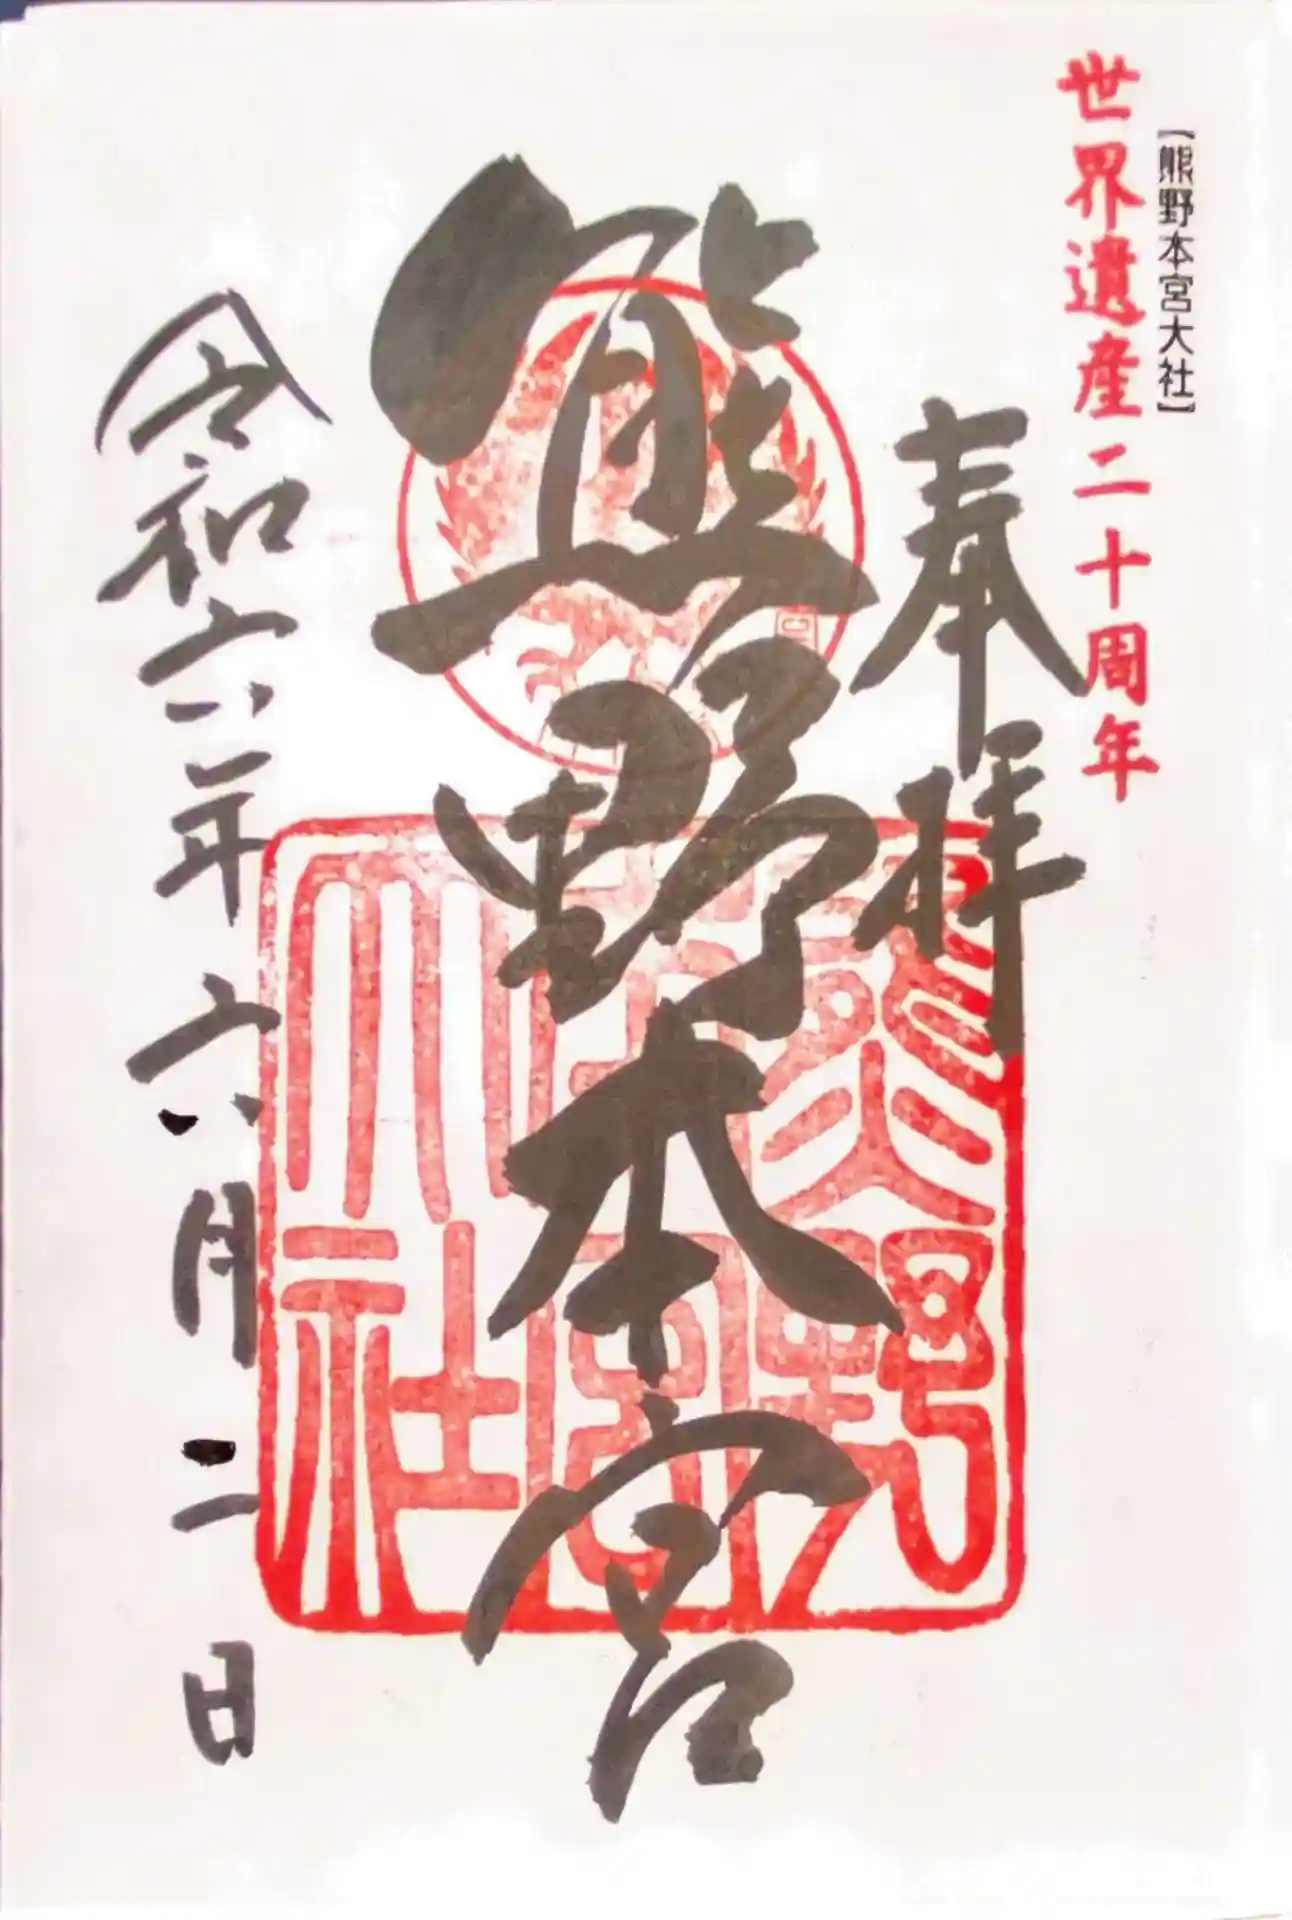 【熊野本宮大社】
世界遺産二十周年
奉拝
熊野本宮
令和六年六月二日
熊野
本宮
大社